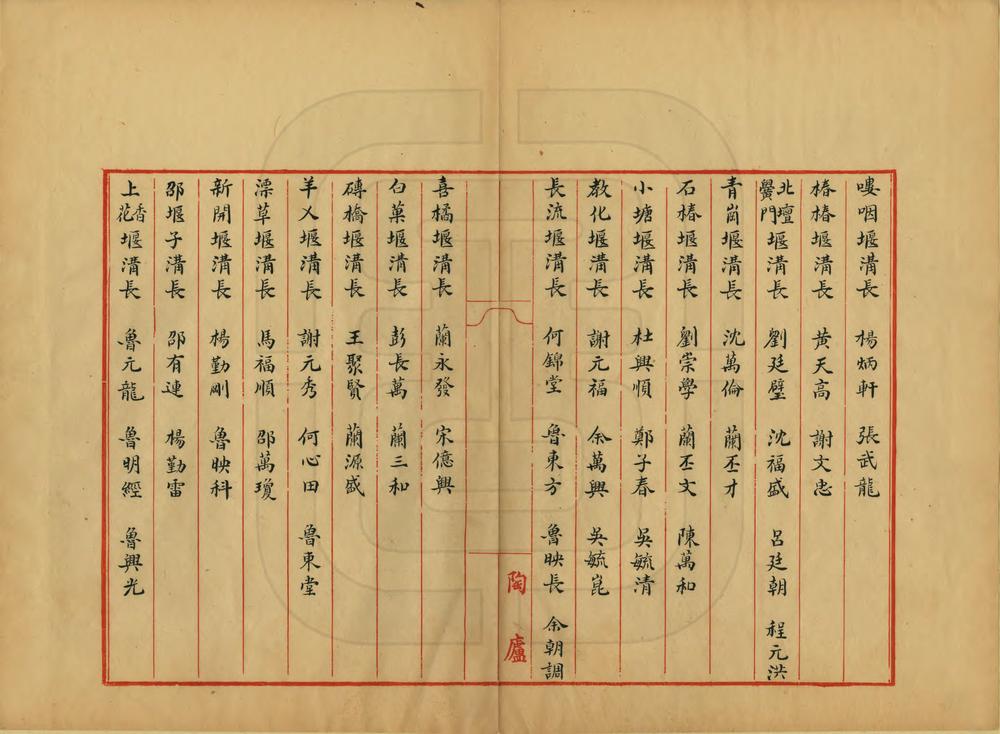 嘍咽堰溝長 楊炳軒 張武龍
椿椿堰溝長 黃天高 謝文忠
北壇黌門堰溝長 劉廷璧 沈福盛 呂廷朝 程元洪
青崗堰溝長 沈萬倫 蘭丕才
石椿堰溝長 劉崇學 蘭丕文 陳萬和
小塘堰溝長 杜興順 鄭子春 吳毓清
教化堰溝長 謝元福 余萬興 吳毓崑
長流堰溝長 何錦堂 魯東方 魯映長 余朝調
陶廬
喜橘堰溝長 蘭永發 宋億興
白菓堰溝長 彭長萬 蘭三和
磚橋堰溝長 王聚賢 蘭源盛
羊乂堰溝長 謝元秀 何心田 魯東堂
漂草堰溝長 馬福順 邵萬瓊
新開堰溝長 楊勤剛 魯映科
邵堰子溝長 邵有連 楊勤雷
上香花堰溝長 魯元龍 魯明經 魯興光